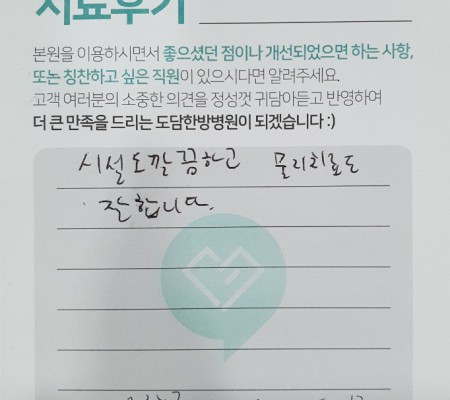 치료후기
본원을 이용하시면서 좋으셨던 점이나 개선되었으면 하는 사항,
또는 칭찬하고 싶은 직원이 있으시다면 알려주세요.
고객 여러분의 소중한 의견을 정성껏 귀담아듣고 반영하여
더 큰 만족을 드리는 도담한방병원이 되겠습니다 :)
시설도깔끔하고 물리치료도
잘합니다.